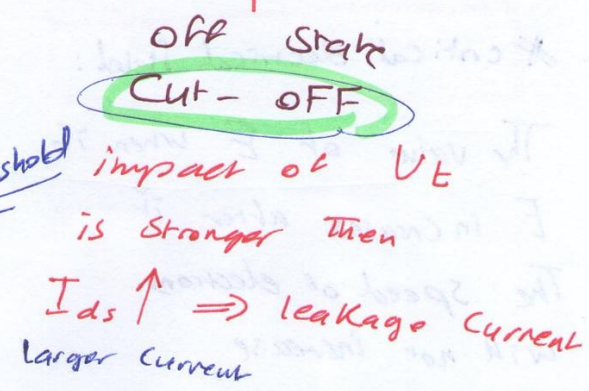 off state
Cut-off
shold impact of Vt
is stronger then
Ids ↑ ⇒ leakage current
Larger current